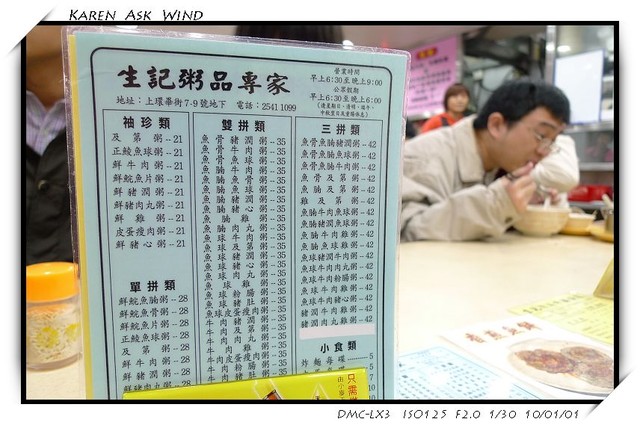 KAREN ASK WIND
生記粥品專家
地址：上環畢街7-9號地下 電話：2541 1099
營業時間
早上6:30至晚上9:00
公眾假期
早上6:30至晚上6:00
袖珍類
及第粥-21
正鯪魚球粥-21
鮮牛肉粥-21
鮮鯇魚片粥-21
鮮豬潤粥-21
鮮豬肉丸粥-21
鮮雞粥-21
皮蛋瘦肉粥-21
鮮豬心粥-21
單拼類
鮮鯇魚腩粥-28
鮮鯇魚骨粥-28
鮮鯇魚片粥-28
正鯪魚球粥-28
及第粥-28
鮮牛肉粥-28
鮮豬潤粥-28
鮮豬肉丸粥-28
雙拼類
魚骨豬潤粥-35
魚骨牛肉粥-35
魚骨魚球粥-35
魚腩牛肉粥-35
魚腩魚骨粥-35
魚腩魚球粥-35
魚腩豬潤粥-35
魚腩豬心粥-35
魚腩雞粥-35
魚腩肉丸粥-35
魚球牛肉粥-35
魚球及第粥-35
魚球豬潤粥-35
魚球豬心粥-35
魚球肉丸粥-35
魚球雞粥-35
魚球粉腸粥-35
魚球豬肚粥-35
魚球皮蛋瘦肉粥-35
牛肉豬潤粥-35
牛肉及第粥-35
牛肉肉丸粥-35
牛肉雞粥-35
牛肉皮蛋瘦肉粥-35
牛肉粉腸粥-35
牛肉豬肚粥-35
三拼類
魚骨魚腩豬潤粥-42
魚骨魚腩魚球粥-42
魚骨魚腩牛肉粥-42
魚骨及第粥-42
魚腩及第粥-42
雞及第粥-42
魚腩牛肉魚球粥-42
魚腩魚球豬潤粥-42
魚腩牛肉雞粥-42
魚腩魚球雞粥-42
魚球牛肉豬潤粥-42
魚球牛肉肉丸粥-42
魚球牛肉粉腸粥-42
魚球牛肉雞粥-42
魚球牛肉豬心粥-42
豬潤牛肉雞粥-42
豬潤肉丸雞粥-42
小食類
炸麵每碟-5
只需
DMC-LX3 ISO125 F2.0 1/30 10/01/01